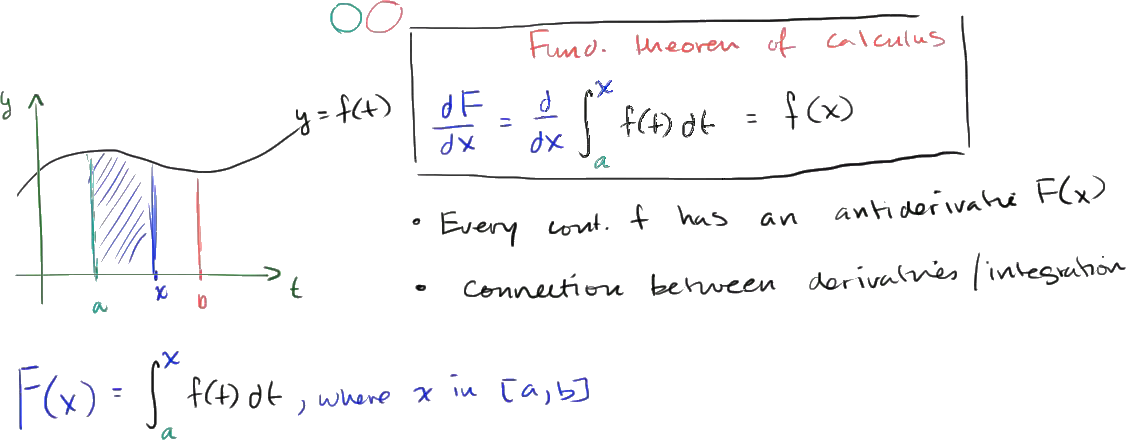 Fund. theorem of calculus
dF/dx = d/dx ∫_a^x f(t) dt = f(x)
y
y = f(t)
a
x
b
t
• Every cont. f has an antiderivative F(x)
• Connection between derivatives/integration
F(x) = ∫_a^x f(t) dt, where x in [a,b]